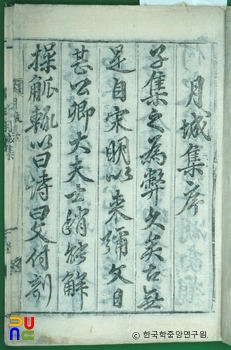 月城集序
子集之爲弊久矣古無
是自宋明以來彌文日
甚公卿大夫士稍能解
操觚輒以曰詩曰文付剞
PUNC
ⓒ 한국학중앙연구원.